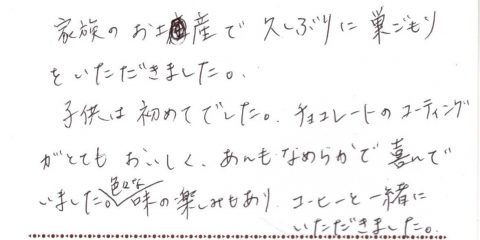 家族のお土産で久しぶりに巣ごもり
をいただきました。
子供は初めてでした。チョコレートのコーティング
がとてもおいしく、あんもなめらかで喜んで
いました。色々な味の楽しみもあり、コーヒーと一緒に
いただきました。